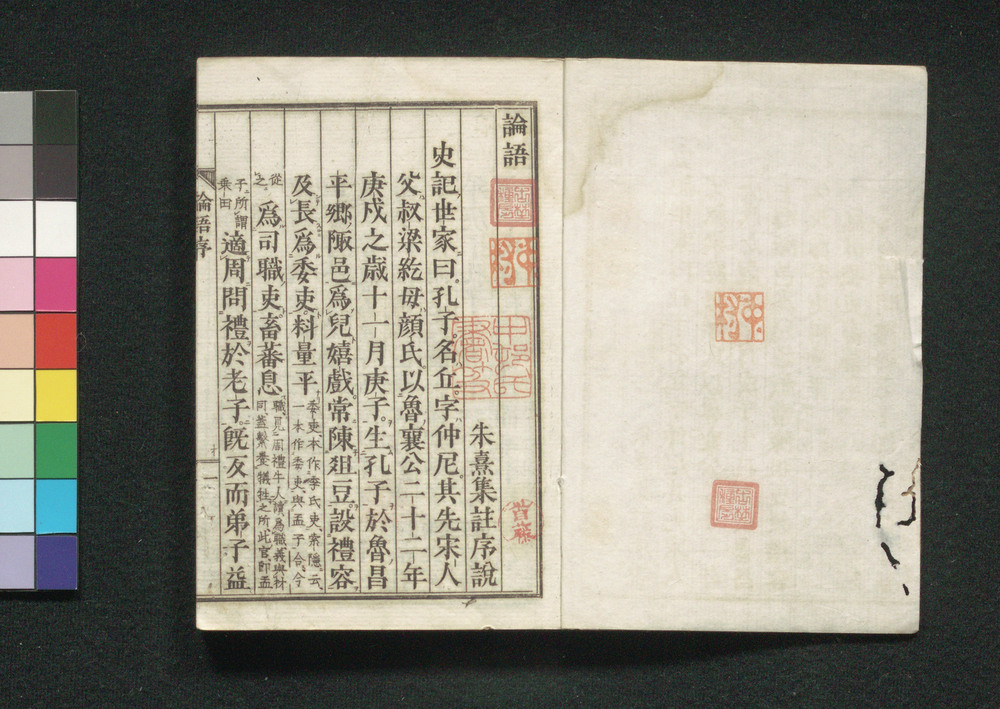 論語
朱熹集註序說
史記世家曰孔子名丘字仲尼其先宋人
父叔梁紇母顏氏以魯襄公二十二年
庚戌之歲十一月庚子生孔子於魯昌
平鄉陬邑爲兒嬉戲常陳俎豆設禮容
及長爲委吏料量平
委吏本作季氏吏索隱云
一本作委吏與孟子合今
從之
爲司職吏畜蕃息
職見周禮牛人讀爲樴義與杙
同蓋繫養犧牲之所此官即孟
子所謂
乘田
適周問禮於老子既反而弟子益
論語序
一